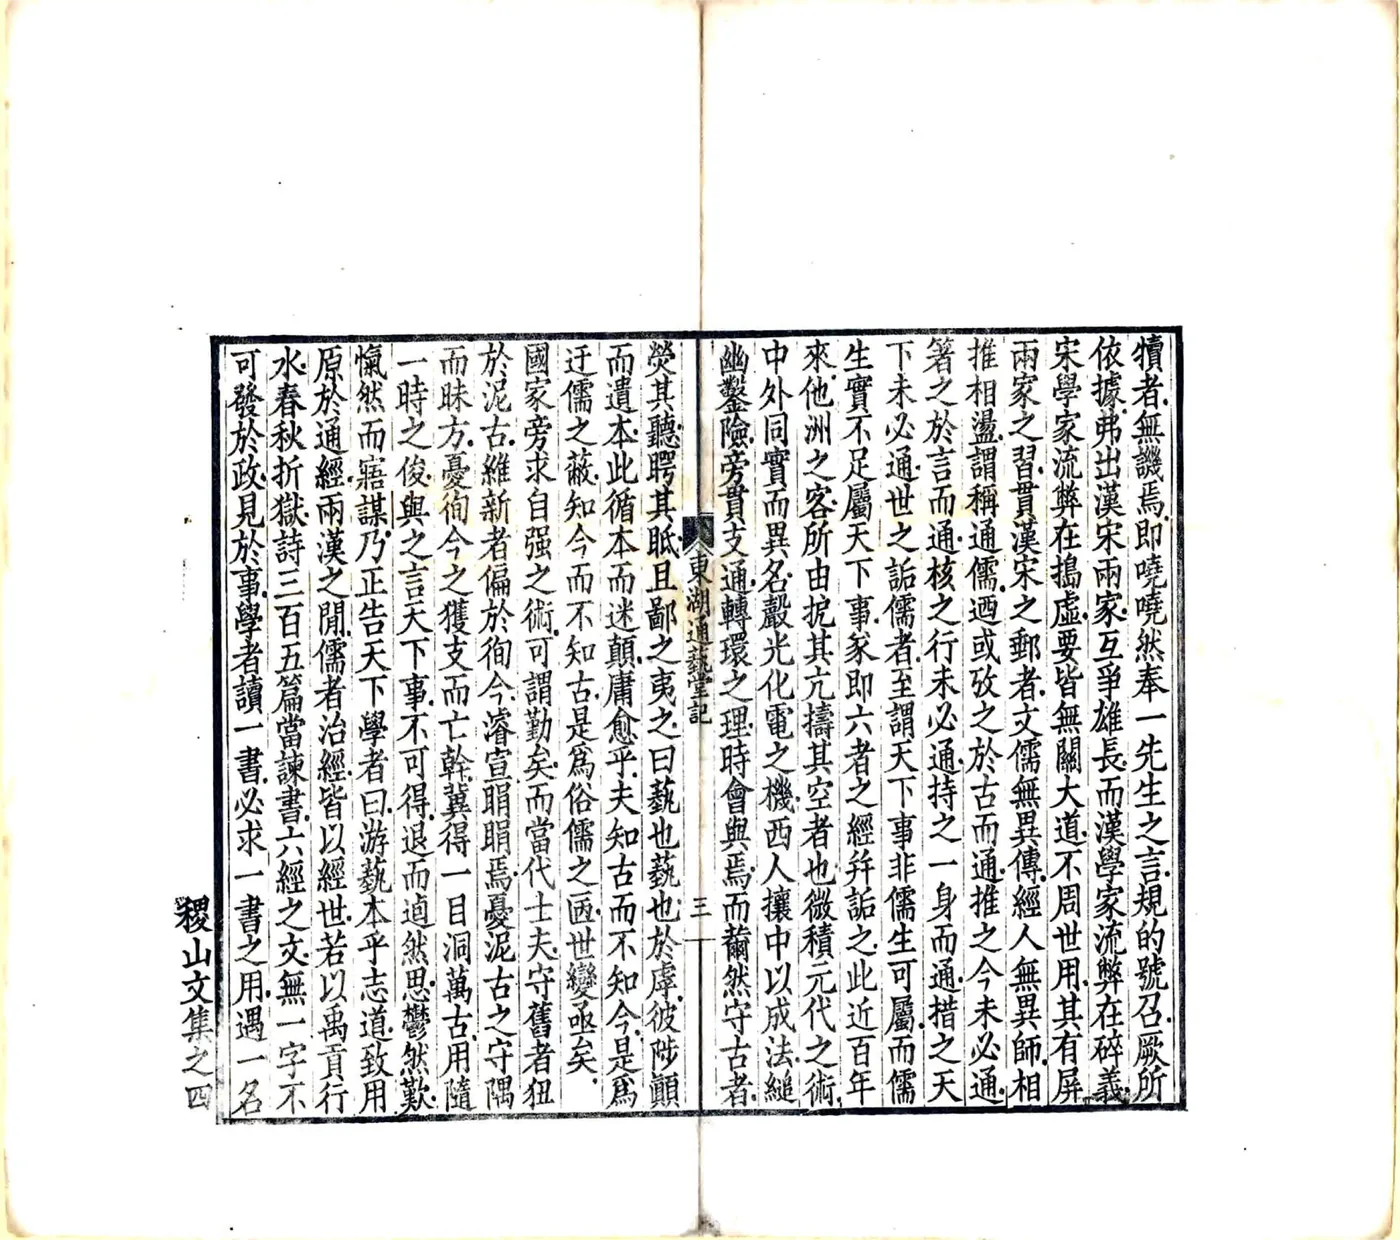 犢者無譏焉即嘵嘵然奉一先生之言規的號召厥所
依據弗出漢宋兩家互爭雄長而漢學家流弊在碎義
宋學家流弊在搗虛要皆無關大道不周世用其有屏
兩家之習貫漢宋之郵者文儒無異傳經人無異師相
推相盪謂稱通儒迺或攷之於古而通推之今未必通
箸之於言而通核之行未必通持之一身而通措之天
下未必通世之詬儒者至謂天下事非儒生可屬而儒
生實不足屬天下事家即六者之經幷詬之此近百年
來他洲之客所由扼其亢擣其空者也微積元代之術
中外同實而異名聲光化電之機西人攘中以成法縋
幽鑿險旁貫支通轉環之理時會與焉而薾然守古者
東湖通藝堂記
三
熒其聽睜其眡且鄙之夷之曰藝也藝也於虖彼陟顚
而遺本此循本而迷顚庸愈乎夫知古而不知今是爲
迂儒之蔽知今而不知古是爲俗儒之㔷世變亟矣
國家旁求自强之術可謂勤矣而當代士夫守舊者狃
於泥古維新者偏於徇今濬宣睊睊焉憂泥古之守隅
而昧方憂徇今之獲支而亡榦冀得一目洞萬古用隨
一時之俊與之言天下事不可得退而逌然思鬱然歎
愾然而寤謀乃正告天下學者曰游藝本乎志道致用
原於通經兩漢之閒儒者治經皆以經世若以禹貢行
水春秋折獄詩三百五篇當諫書六經之文無一字不
可發於政見於事學者讀一書必求一書之用遇一名
稷山文集之四